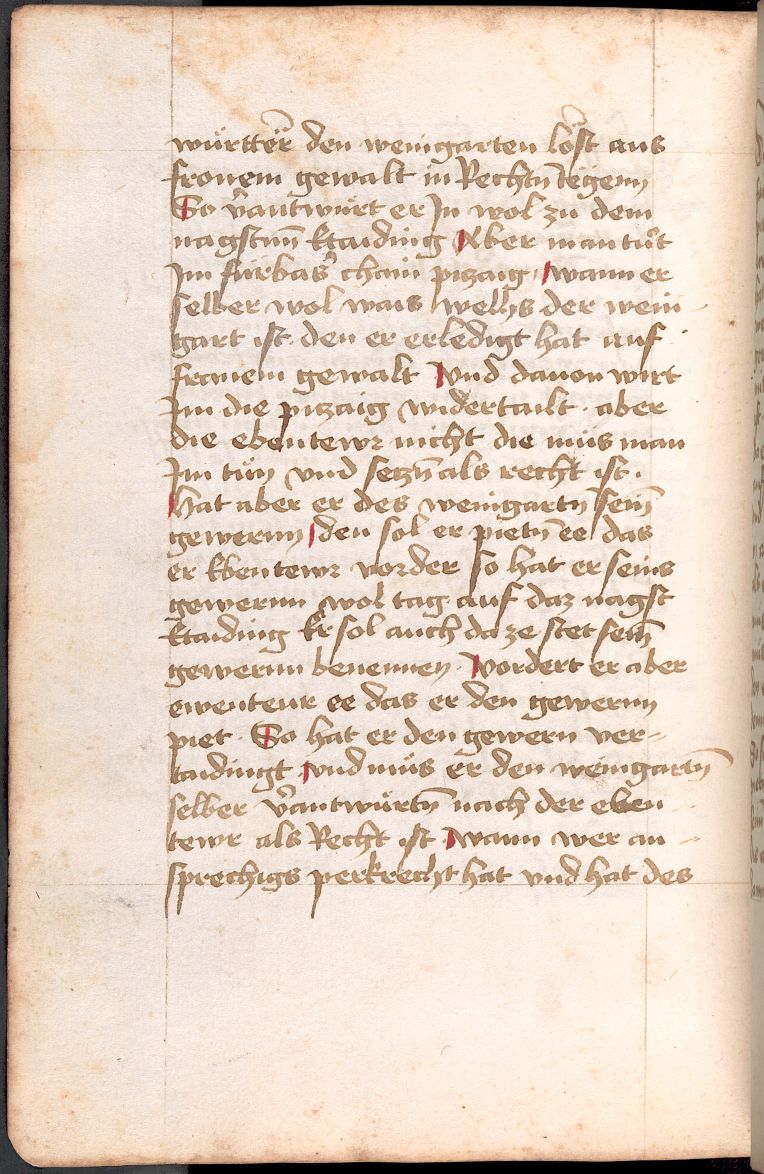 württ er den weingarten löst aus
fronem gewalt in Rechtn̄ tëgenn
So v̄antwürt er In wol zu dem
nagstnn̄ Etaiding Aber man tut
Im fürbas chain pizaig wann er
selber wol wais welhs der wein
gart ist den er erledigt hat auf
fronem gewalt Vnd dauon wirt
Im die pizaig widertailt · aber
die ebentewr nicht die müs man
Im tün vnd setzn̄ als recht ist ·
Hat aber er des weingartn̄ sein̄
gewernn den sol er pietn̄ ee das
er Ebentewr vorder so hat er seins
gewernn wol tag auf daz nagst
Etaiding Er sol auch da ze stet sein̄
gewernn benennen · Vordert er aber
ewenteur ee das er den gewernn
piet · So hat er den gewern ver-
taidingt vnd müs er den weingartn̄
selber v̄antwürtn̄ nach der eben
tewr als Recht ist Wann wer an -
sprechigs perkrecht hat vnd hat des